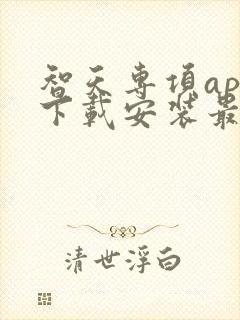 智天专项ap
下载安装最
清世浮白